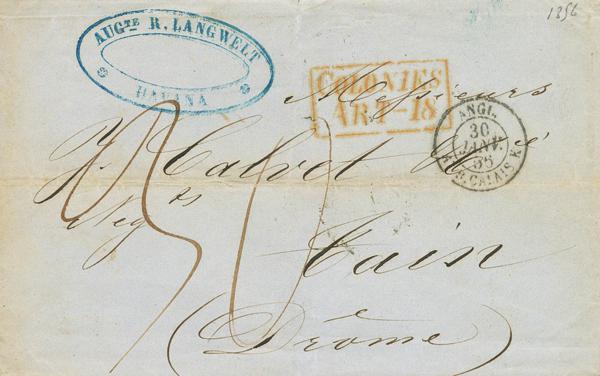 1856
AUGTE R. LANGWELT
HAVANA
COLONIES
ART-18
ANGL.
30
JANV.
56
CALAIS
Messieurs
J. Calvet & Cie
Negts
30
Tain
(Drôme)